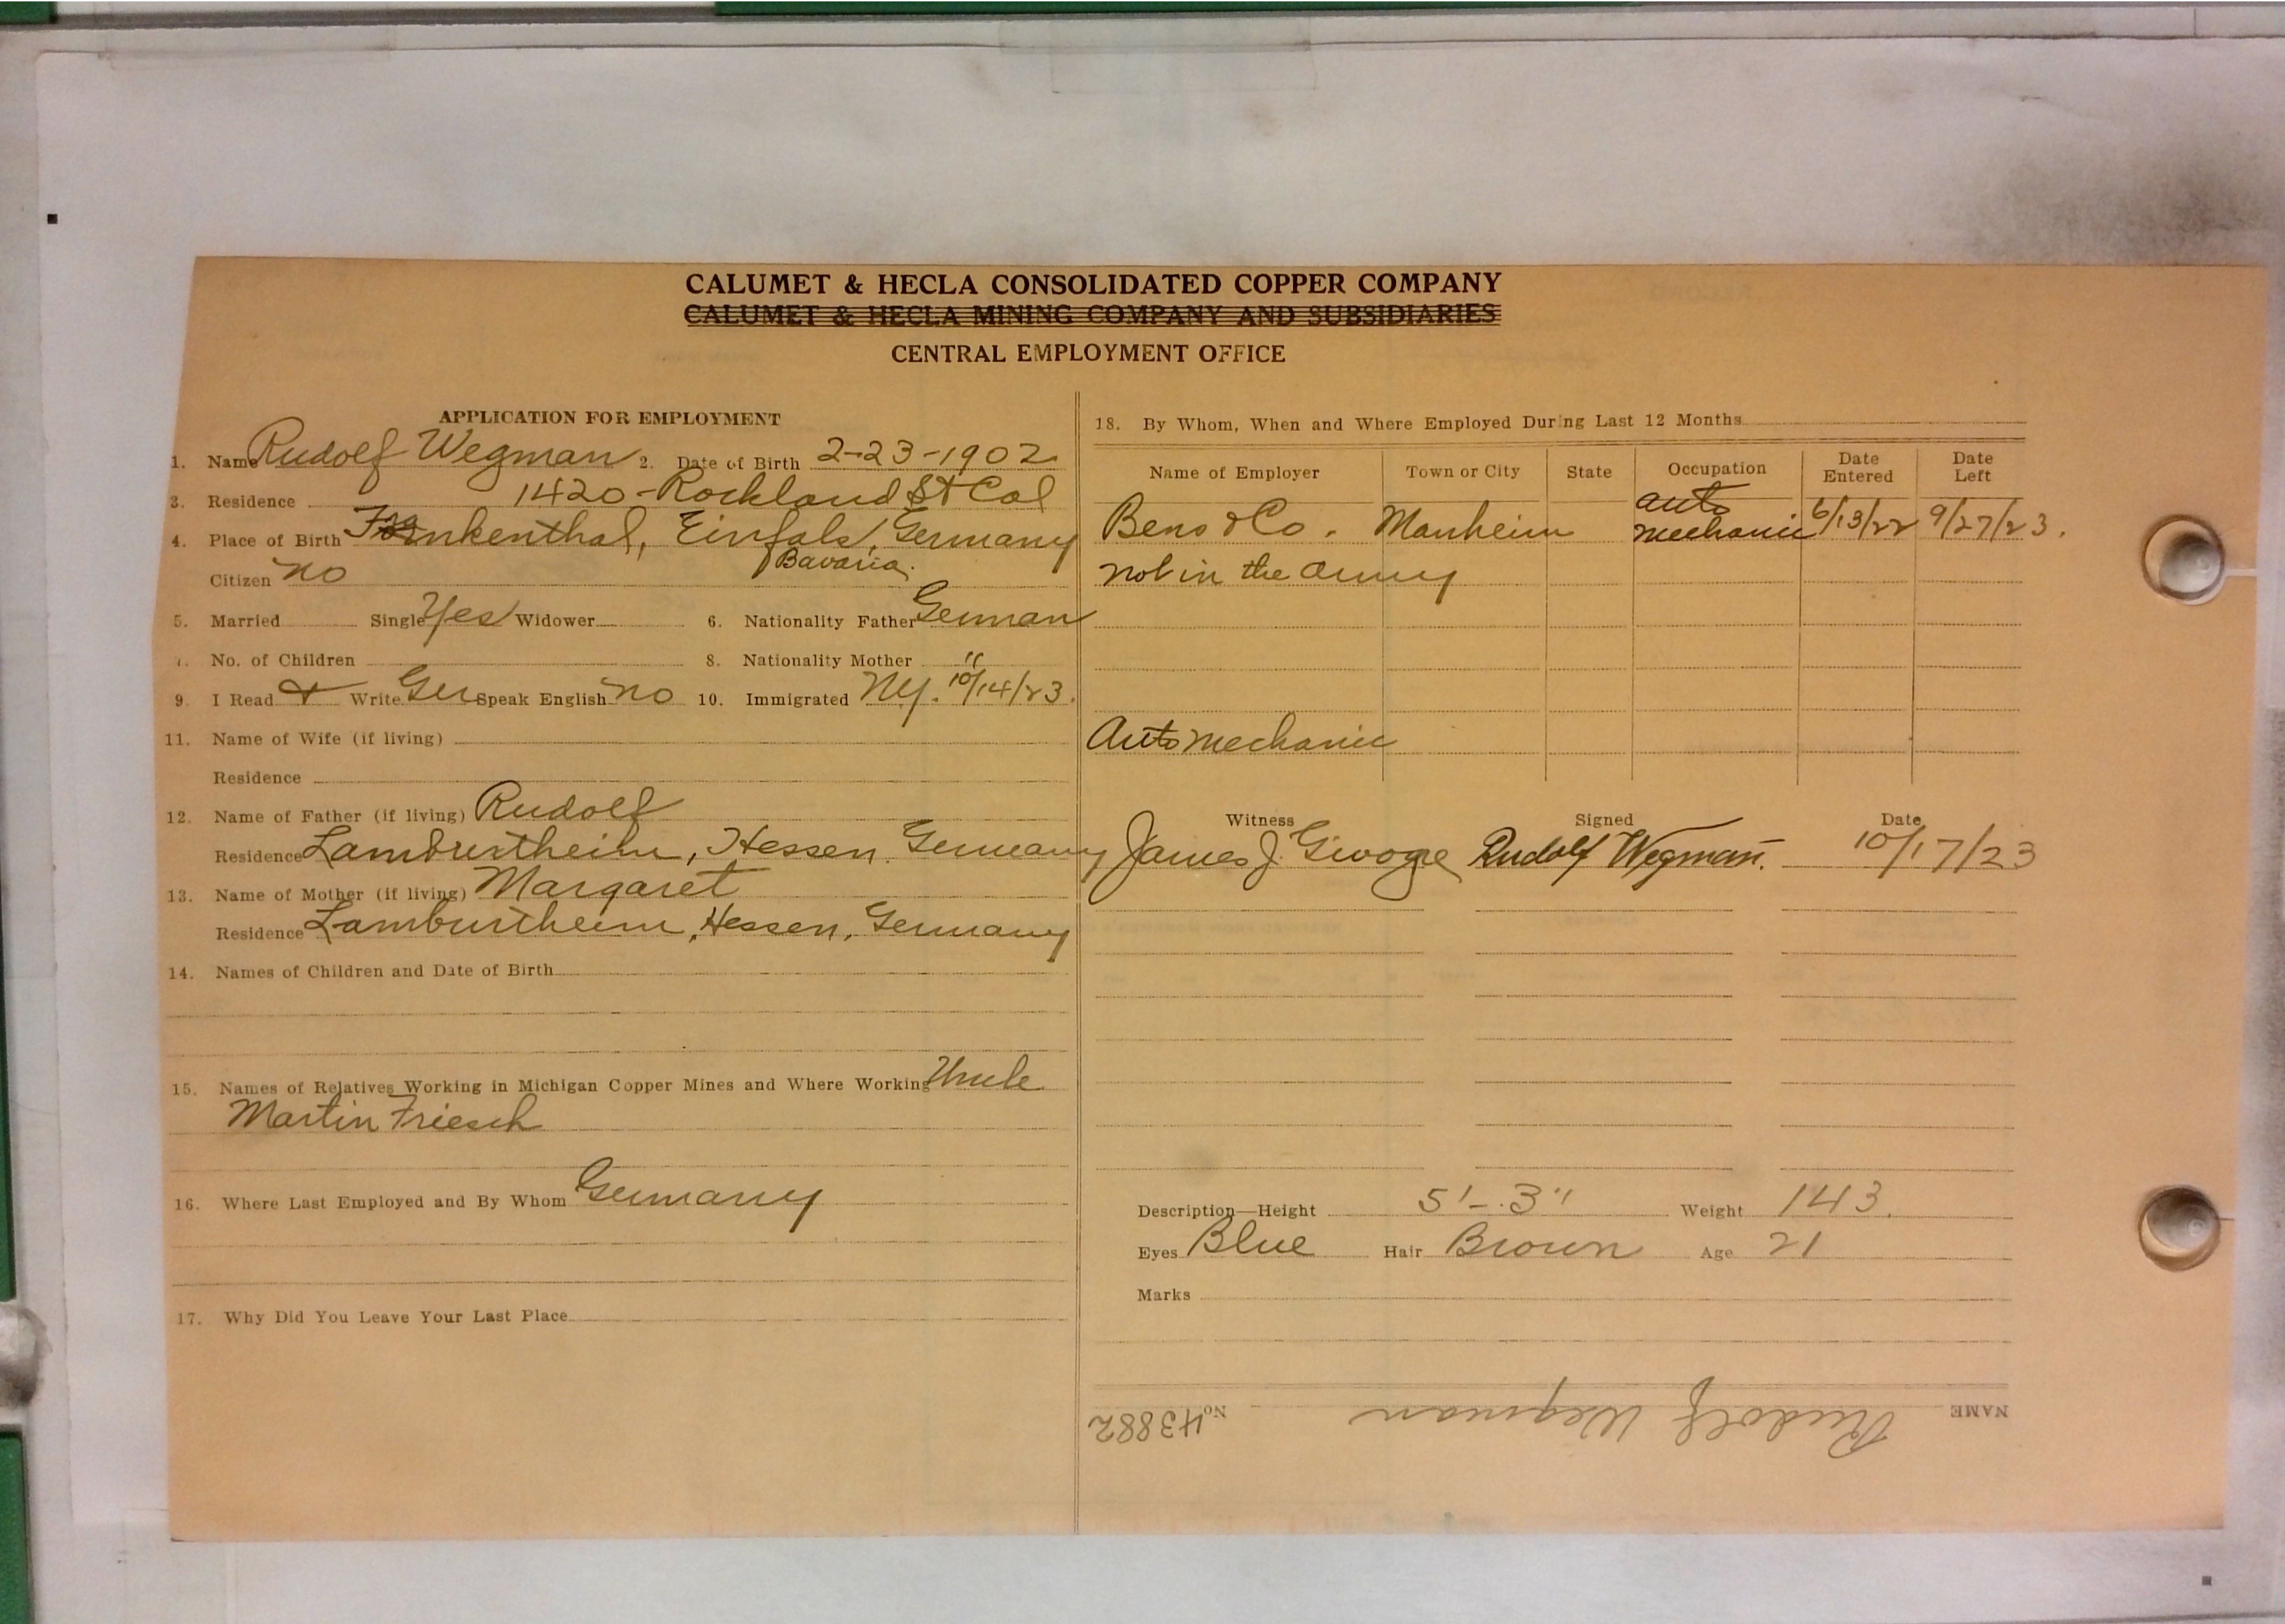 CALUMET & HECLA CONSOLIDATED COPPER COMPANY
CALUMET & HECLA MINING COMPANY AND SUBSIDIARIES
CENTRAL EMPLOYMENT OFFICE
APPLICATION FOR EMPLOYMENT
1. Name Rudolf Wegman 2. Date of Birth 2-23-1902
3. Residence 1420-Rockland St Cal
4. Place of Birth Germany
Bavaria.
Citizen no
5. Married Single Yes Widower 6. Nationality Father German
7. No. of Children 8. Nationality Mother "
9. I Read & Write Ger Speak English no 10. Immigrated NY. 10/14/23.
11. Name of Wife (if living)
Residence
12. Name of Father (if living) Rudolf
Residence Hessen. Germany
13. Name of Mother (if living) Margaret
Residence Hessen, Germany
14. Names of Children and Date of Birth
15. Names of Relatives Working in Michigan Copper Mines and Where Working Uncle
Martin Friesch
16. Where Last Employed and By Whom Germany
17. Why Did You Leave Your Last Place
18. By Whom, When and Where Employed During Last 12 Months
Name of Employer Town or City State Occupation Date Entered Date Left
Bens & Co. Manheim auto mechanic 6/13/22 9/27/23.
not in the army
Auto mechanic
Witness Signed Date
James J. Rudolf Wegman. 10/17/23
Description—Height 5'-3" Weight 143.
Eyes Blue Hair Brown Age 21
Marks
NAME Rudolf Wegman No. 43882